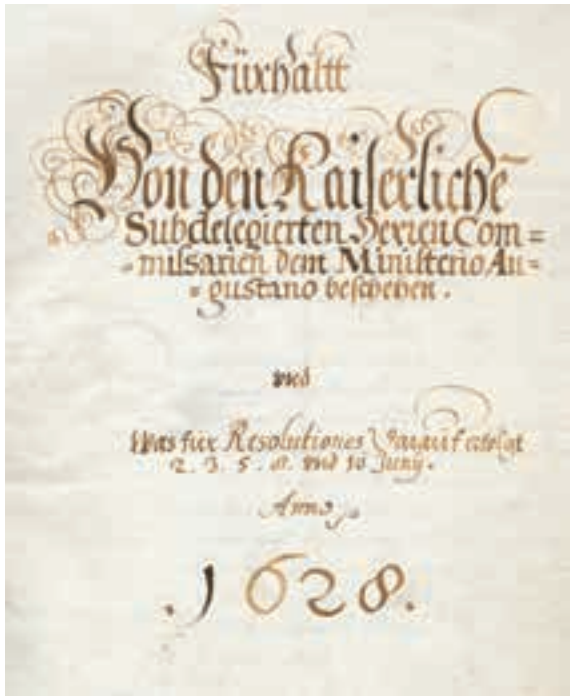 Fürhaltt
Von den Kaiserliche
Subdelegierten Herren Com=
=missarien dem Ministerio Au=
=gustano beschehen.
vnd
Was für Resolutiones darauf erfolgt
2. 3. 5. 8. vnd 10 Junÿ.
Anno
.1628.